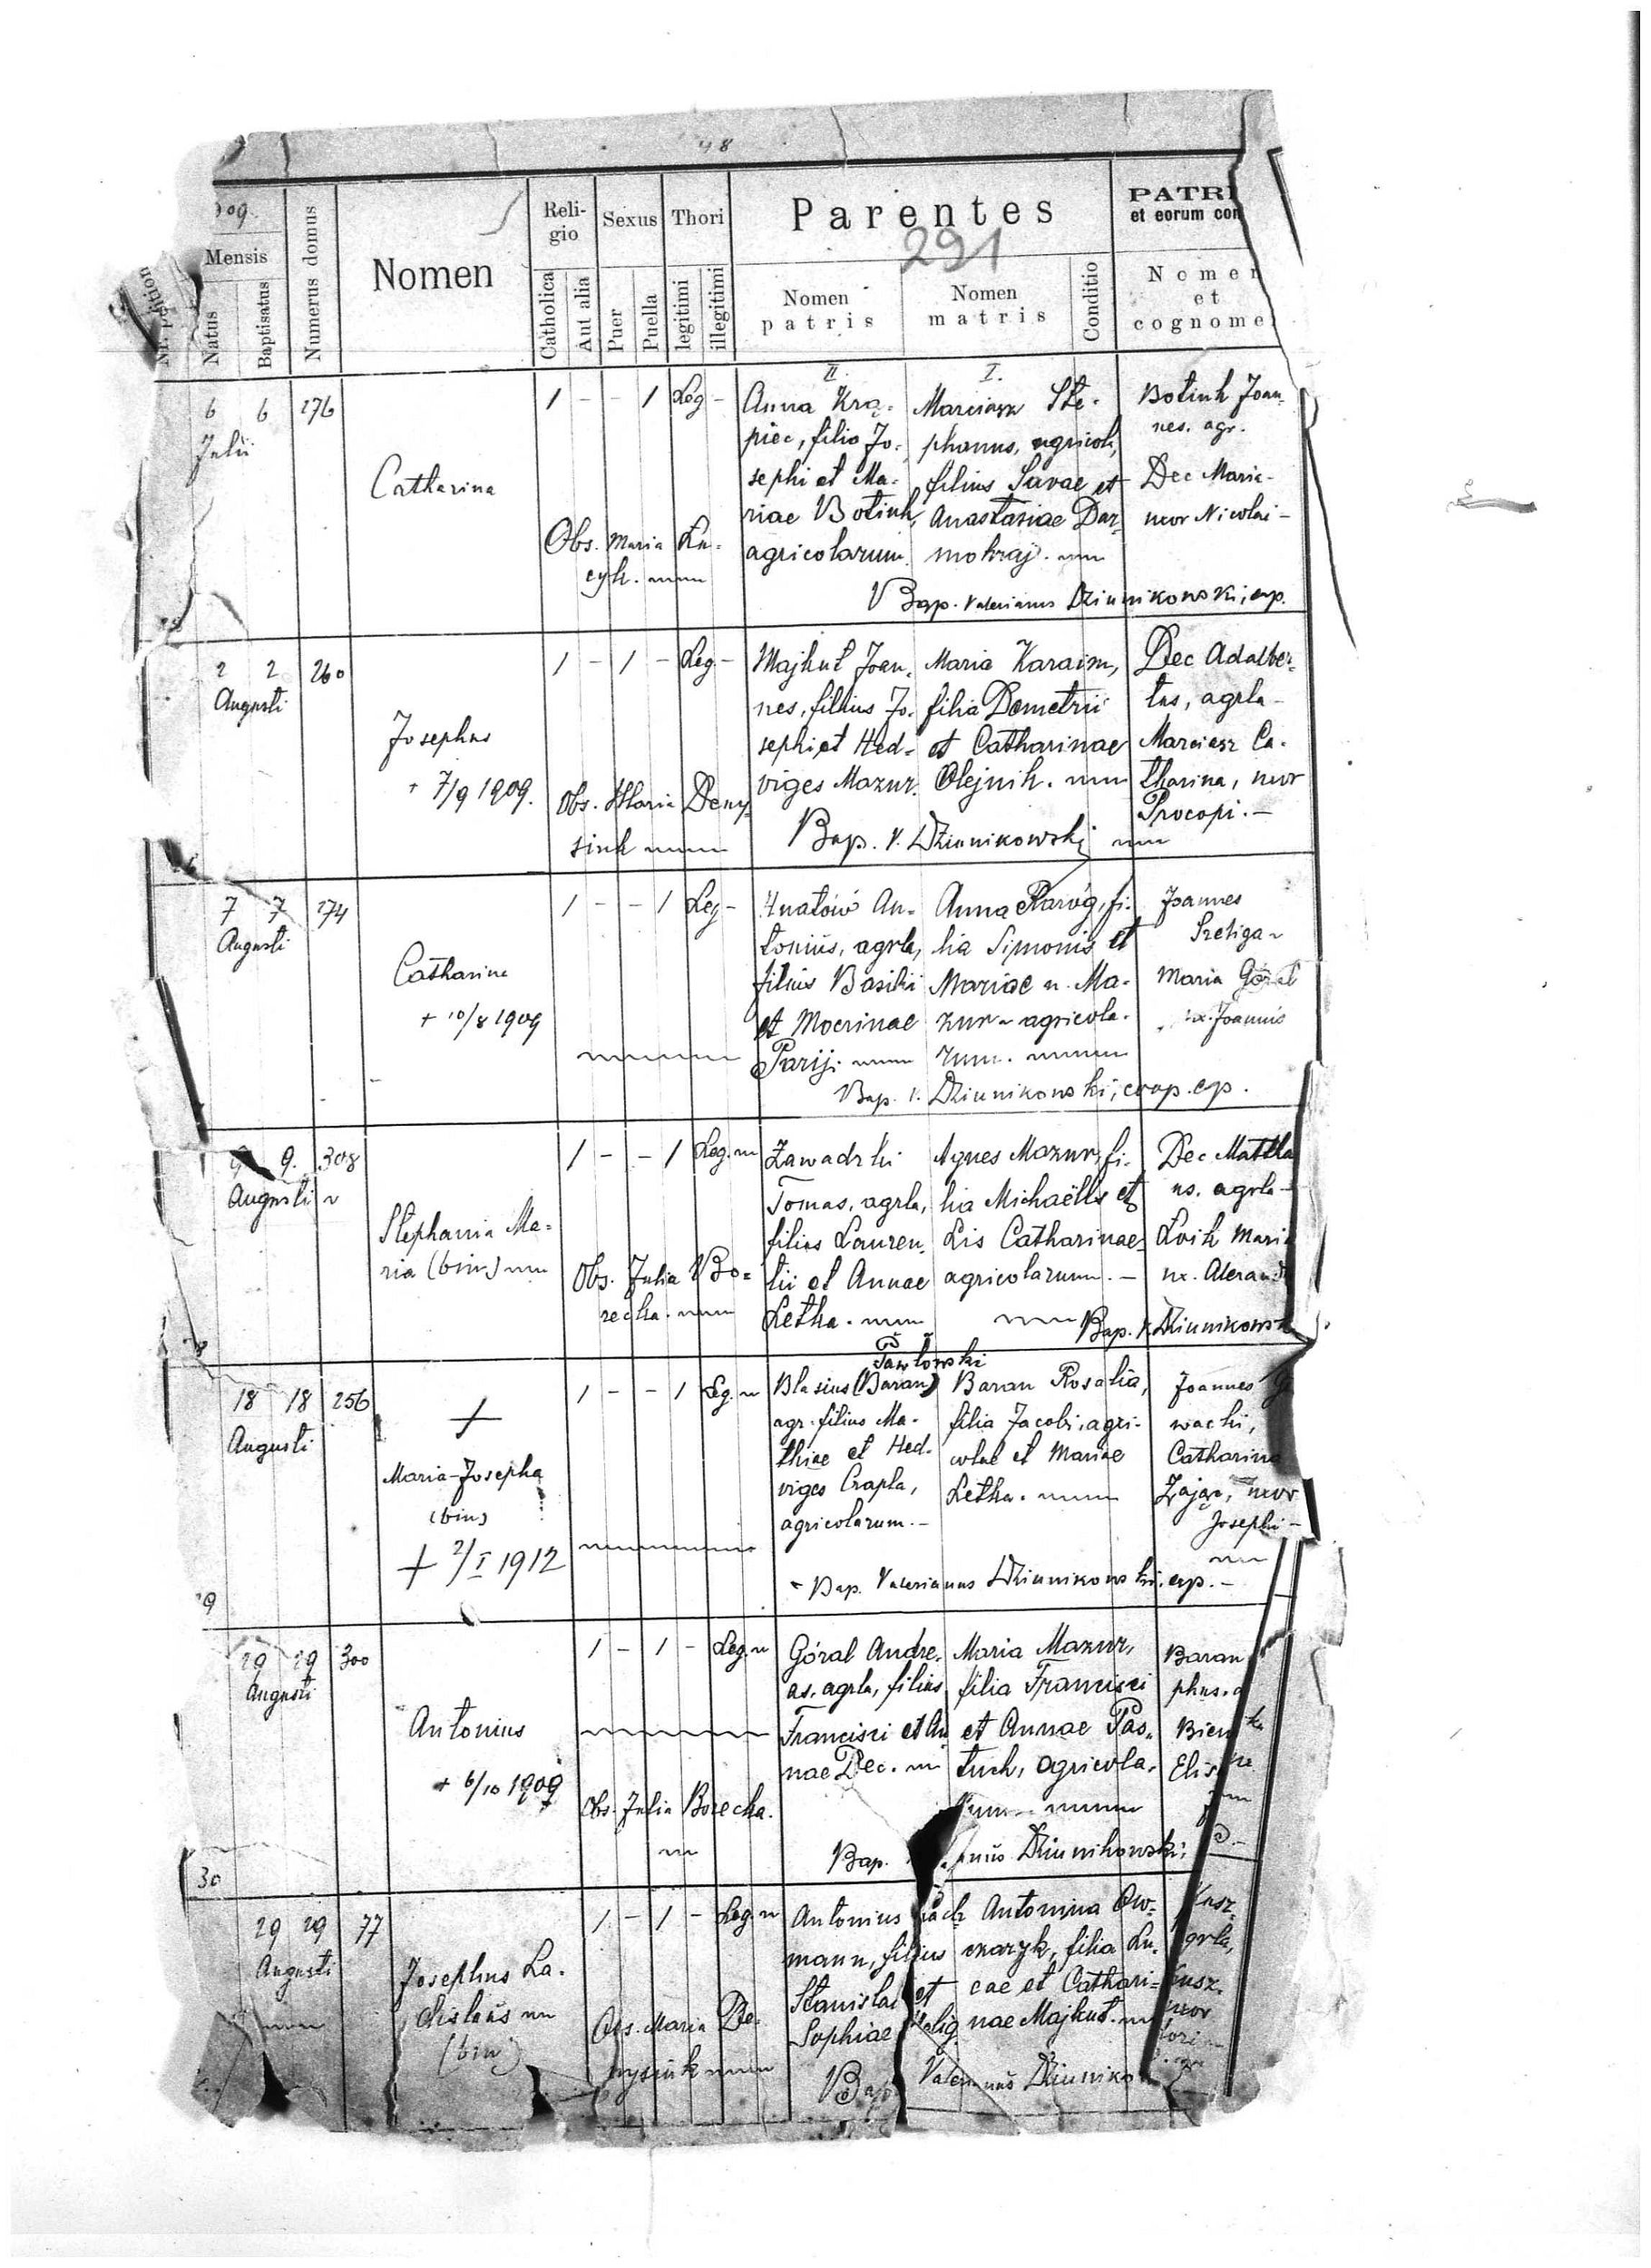 48
909.
Mensis
Natus
Baptisatus
Numerus domus
Nomen
Reli-
gio
Catholica
Aut alia
Sexus
Puer
Puella
Thori
legitimi
illegitimi
Parentes
291
Nomen
patris
Nomen
matris
Conditio
PATRI
et eorum con
Nomen
et
cognome
6 6 276
Julii
Catharina
1 - - 1 Leg -
Obs. Maria Lu-
cyk.
II.
Anna Krą-
piec, filia Jo-
sephi et Ma-
riae Botiuk,
agricolarum.
I.
Marciasz Ste-
phanus, agricola,
filius Savae et
Anastasiae Dar-
mohraj.
Botiuk Joan-
nes. agr.
Dec Maria-
uxor Nicolai-
Bap. Valerianus Dziunikowski, exp.
2 2 260
Augusti
Josephus
+ 7/9 1909.
1 - 1 - Leg -
Obs. Maria Deny-
siuk
Majkut Joan-
nes, filius Jo-
sephi et Hed-
viges Mazur.
Maria Karaim,
filia Demetrii
et Catharinae
Olejnik.
Dec Adalber-
tus, agrla-
Marciasz Ca-
tharina, uxor
Procopi. -
Bap. V. Dziunikowski
7 7 274
Augusti
Catharina
+ 10/8 1909
1 - - 1 Leg -
Hnatów An-
tonius, agrla,
filius Basilii
et Mocrinae
Parij.
Anna Raróg, fi-
lia Simonis et
Mariae n. Ma-
zur agricola-
rum.
Joannes
Szeliga
Maria Góral
ux. Joannis
Bap. V. Dziunikowski, coop. exp.
9 9. 308
Augusti
Stephania Ma-
ria (bin)
1 - - 1 Leg.
Obs. Julia Bo-
recka.
Zawadzki
Tomas, agrla,
filius Lauren-
tii et Annae
Letka.
Agnes Mazur, fi-
lia Michaëlis et
Lis Catharinae
agricolarum. -
Dec Mattha
us. agrla-
Loik Mari
ux. Alexand
Bap. V. Dziunikowsk
18 18 256
Augusti
+
Maria-Josepha
(bin)
+ 2/I 1912
1 - - 1 Leg.
Pawłowski
Blasius (Baran)
agr. filius Ma-
thiae et Hed-
viges Czapla,
agricolarum. -
Baran Rosalia,
filia Jacobi, agri-
colae et Mariae
Letka.
Joannes
wacki,
Catharina
Zając, uxor
Josephi -
Bap. Valerianus Dziunikowski, exp. -
29
29 29 300
Augusti
Antonius
+ 6/10 1909
1 - 1 - Leg.
Obs. Julia Borecka.
Góral Andre-
as, agrla, filius
Francisci et An
nae Dec.
Maria Mazur,
filia Francisci
et Annae Pas-
tuch, agricola-
rum.
Baran
phus. a
Bien
Elis
Bap. Dziunikowski;
30
29 29 77
Augusti
Josephus La-
dislaus
(bin)
1 - 1 - Leg.
Obs. Maria De-
nysiuk
Antonius
mann, filius
Stanislai et
Sophiae Szelig
Antonina Ow-
czaryk, filia Lu-
cae et Cathari-
nae Majkut.
Kusz
agrla,
Kusz.
uxor
Bap. Valerianus Dziuniko